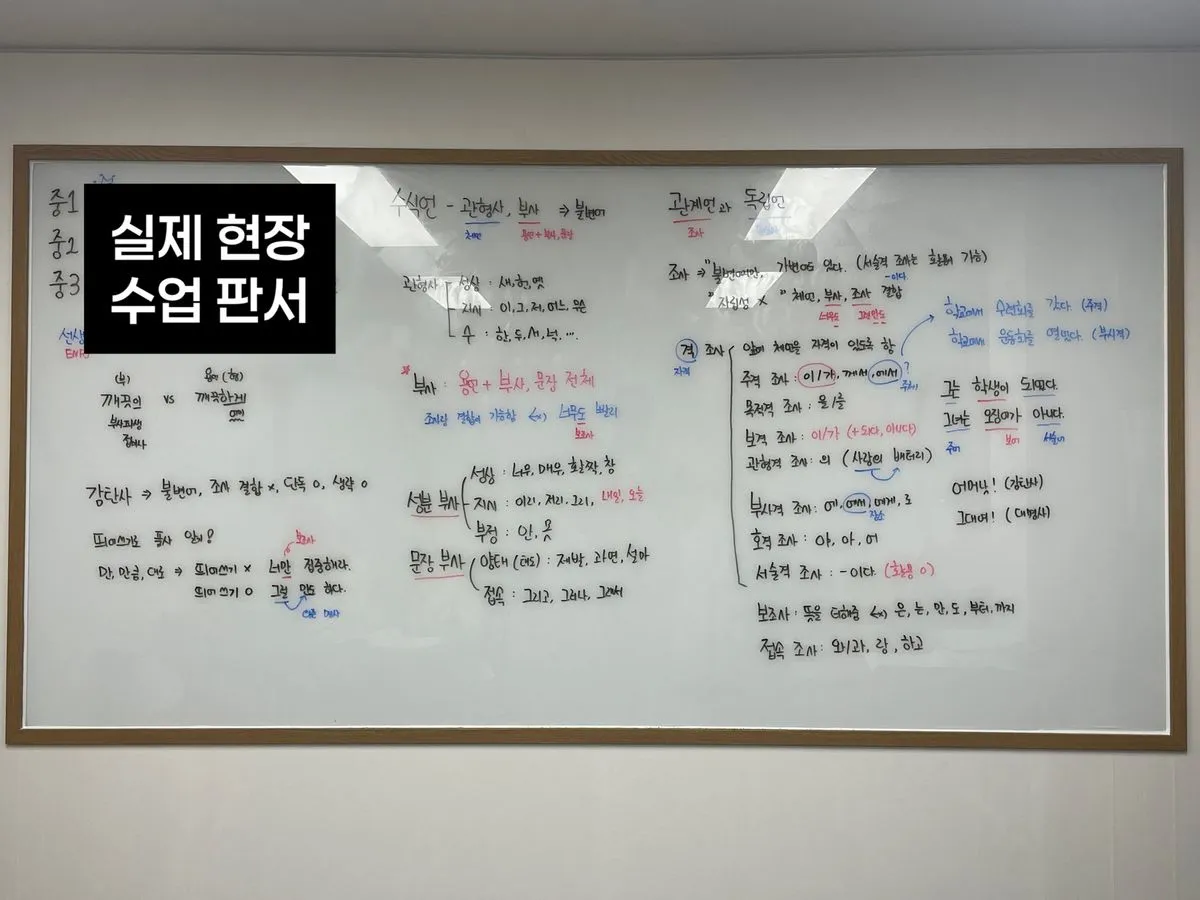 중1
중2
중3
실제 현장
수업 판서
(부)
깨끗이
부사파생
접미사
vs
용언(형)
깨끗하게
감탄사 ⇒ 불변어, 조사 결합 ×, 단독 O, 생략 O
띄어쓰기로 품사 알기?
보조사
만, 만큼, 대로 ⇒ 띄어쓰기 × 너만 집중해라.
띄어쓰기 O 그럴 만도 하다.
수식언 - 관형사, 부사 ⇒ 불변어
체언
용언+부사, 문장
관형사
성상 : 새, 헌, 옛
지시 : 이, 그, 저, 어느, 모든
수 : 한, 두, 서, 넉, ...
*부사 : 용언 + 부사, 문장 전체
조사랑 결합이 가능함 너무도 빨리
보조사
성분 부사
성상 : 너무, 매우, 활짝, 참
지시 : 이리, 저리, 그리, 내일, 오늘
부정 : 안, 못
문장 부사
양태(태도) : 제발, 과연, 설마
접속 : 그리고, 그러나, 그래서
관계언과 독립언
조사
조사 ⇒ "불변어만, 가변어도 있다. (서술격 조사는 활용이 가능)
-이다.
"자립성 × " 체언, 부사, 조사 결합
너무도
격 조사
자격
앞에 체언을 자격이 있도록 함
주격 조사 : 이/가, 께서, 에서 ?
주어
목적격 조사 : 을/를
보격 조사 : 이/가 (+되다, 아니다)
관형격 조사 : 의 (사랑의 배터리)
부사격 조사 : 에, 에서, 에게, 로
장소
호격 조사 : 야, 아, 여
서술격 조사 : -이다. (활용 O)
보조사 : 뜻을 더해줌 은, 는, 만, 도, 부터, 까지
접속 조사 : 와/과, 랑, 하고
학교에서 수련회를 갔다. (주격)
학교에서 운동회를 열었다. (부사격)
그는 학생이 되었다.
그녀는 모집이가 아니다.
주어
보어
서술어
어머낫! (감탄사)
그대여! (대명사)